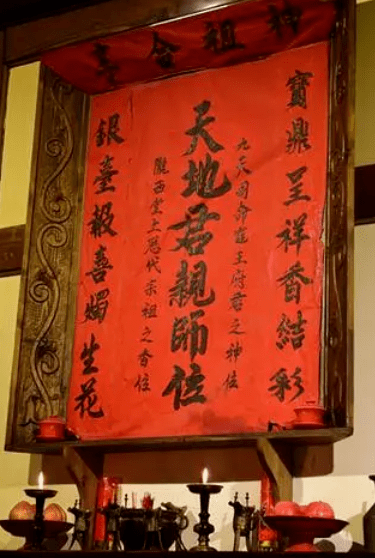 神祖合臺
寶鼎呈祥香結彩
九天司命竈王府君之神位
天地君親師位
隴西堂上歷代宗祖之香位
銀臺報喜燭生花